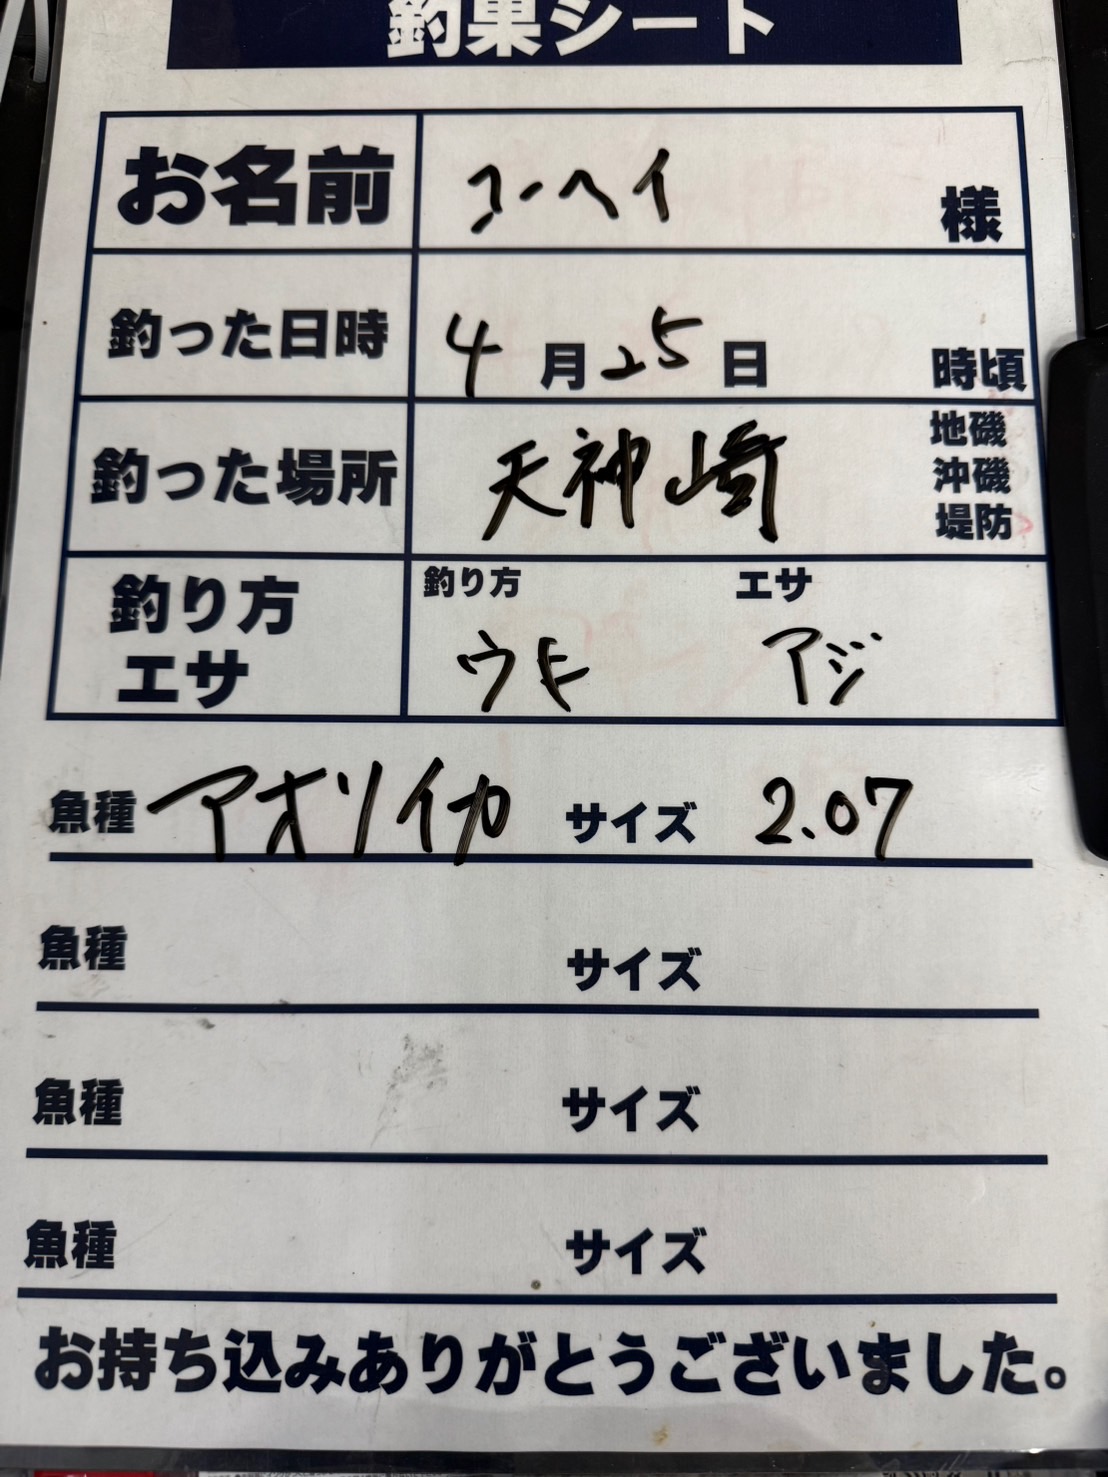 釣果シート
お名前 コーヘイ 様
釣った日時 4月25日 時頃
釣った場所 天神崎 地磯
沖磯
堤防
釣り方 エサ
釣り方
エサ
ウキ アジ
魚種 アオリイカ サイズ 2.07
魚種 サイズ
魚種 サイズ
魚種 サイズ
お持ち込みありがとうございました。